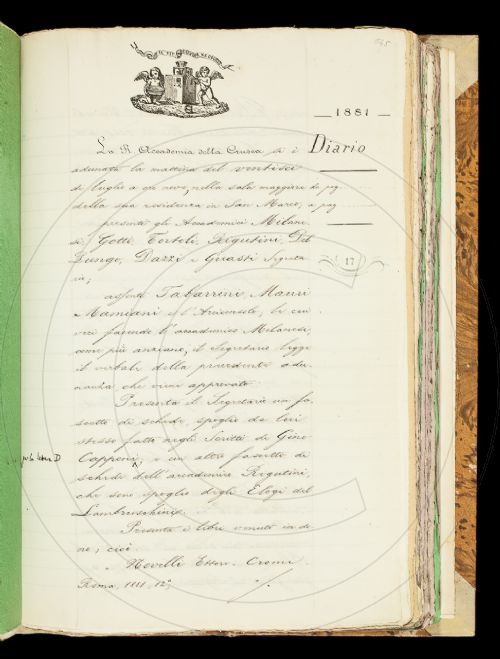 1881
Diario
La R. Accademia della Crusca si è
adunata la mattina del ventisei
di luglio a ore nove, nella sala maggiore
della sua residenza in San Marco,
presenti gli Accademici Milane-
si, Gotti, Tortoli, Rigutini, Del
Lungo, Dazzi e Guasti Segreta-
rio;
17
assenti Tabarrini, Mauri
Mamiani e l'Arciconsolo, le cui
veci facendo l'accademico Milanesi,
come più anziano; il Segretario legge
il verbale della precedente adu-
nanza che viene approvato.
Presenta il Segretario un fa-
scetto di schede, spoglio da lui
stesso fatto negli Scritti di Gino
Capponi; e un altro fascetto di
schede dell'accademico Rigutini,
che sono spoglio degli Elogi del
Lambruschini.
Presenta i libri venuti in do-
no; cioè
Novelli Ettore. Cromi.
Roma, 1881, 12º;